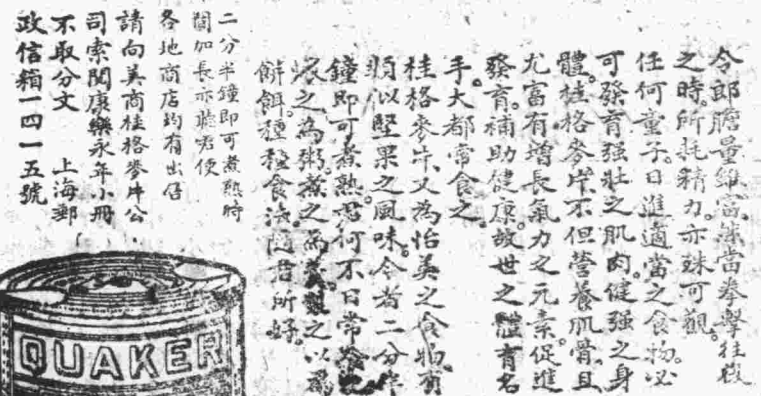 今郎膽量雖富然當拳擊狂毆
之時所耗精力亦殊可觀。
任何童子。日進適當之食物。必
可發育强壯之肌肉。健强之身
體。桂格麥片。不但營養肌骨。且
尤富有增長氣力之元素。促進
發育。補助健康。故世之體育名
手。大都常食之。
桂格麥片又為怡美之食物。有
類似堅果之風味。今者二分半
鐘即可煮熟。君何不日常食
之為粥。煮之為羹。製之以為
餅餌。種種食法。隨君所好。
二分半鐘即可煮熟時
間加長亦聽君便
各地商店均有出售
請向美商桂格麥片公
司索閱康樂永年小冊
不取分文 上海郵
政信箱一四一五號
QUAKER